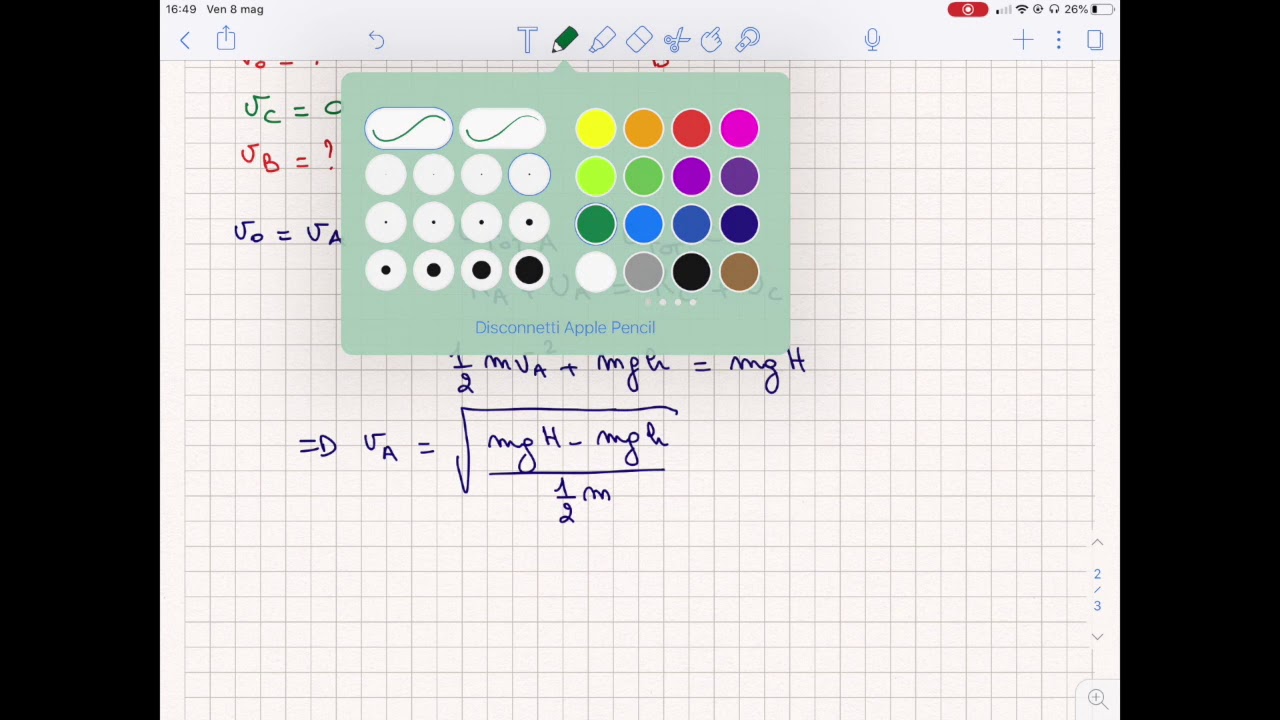 16:49 Ven 8 mag 26%
T
v₀ = ? B
v_C = 0
v_B = ?
v₀ = v_A
K_A + U_A = K_C + U_C
Disconnetti Apple Pencil
1/2 m v_A² + mgh = mgH
=D v_A = √((mgH - mgh) / (1/2 m))
2
/
3